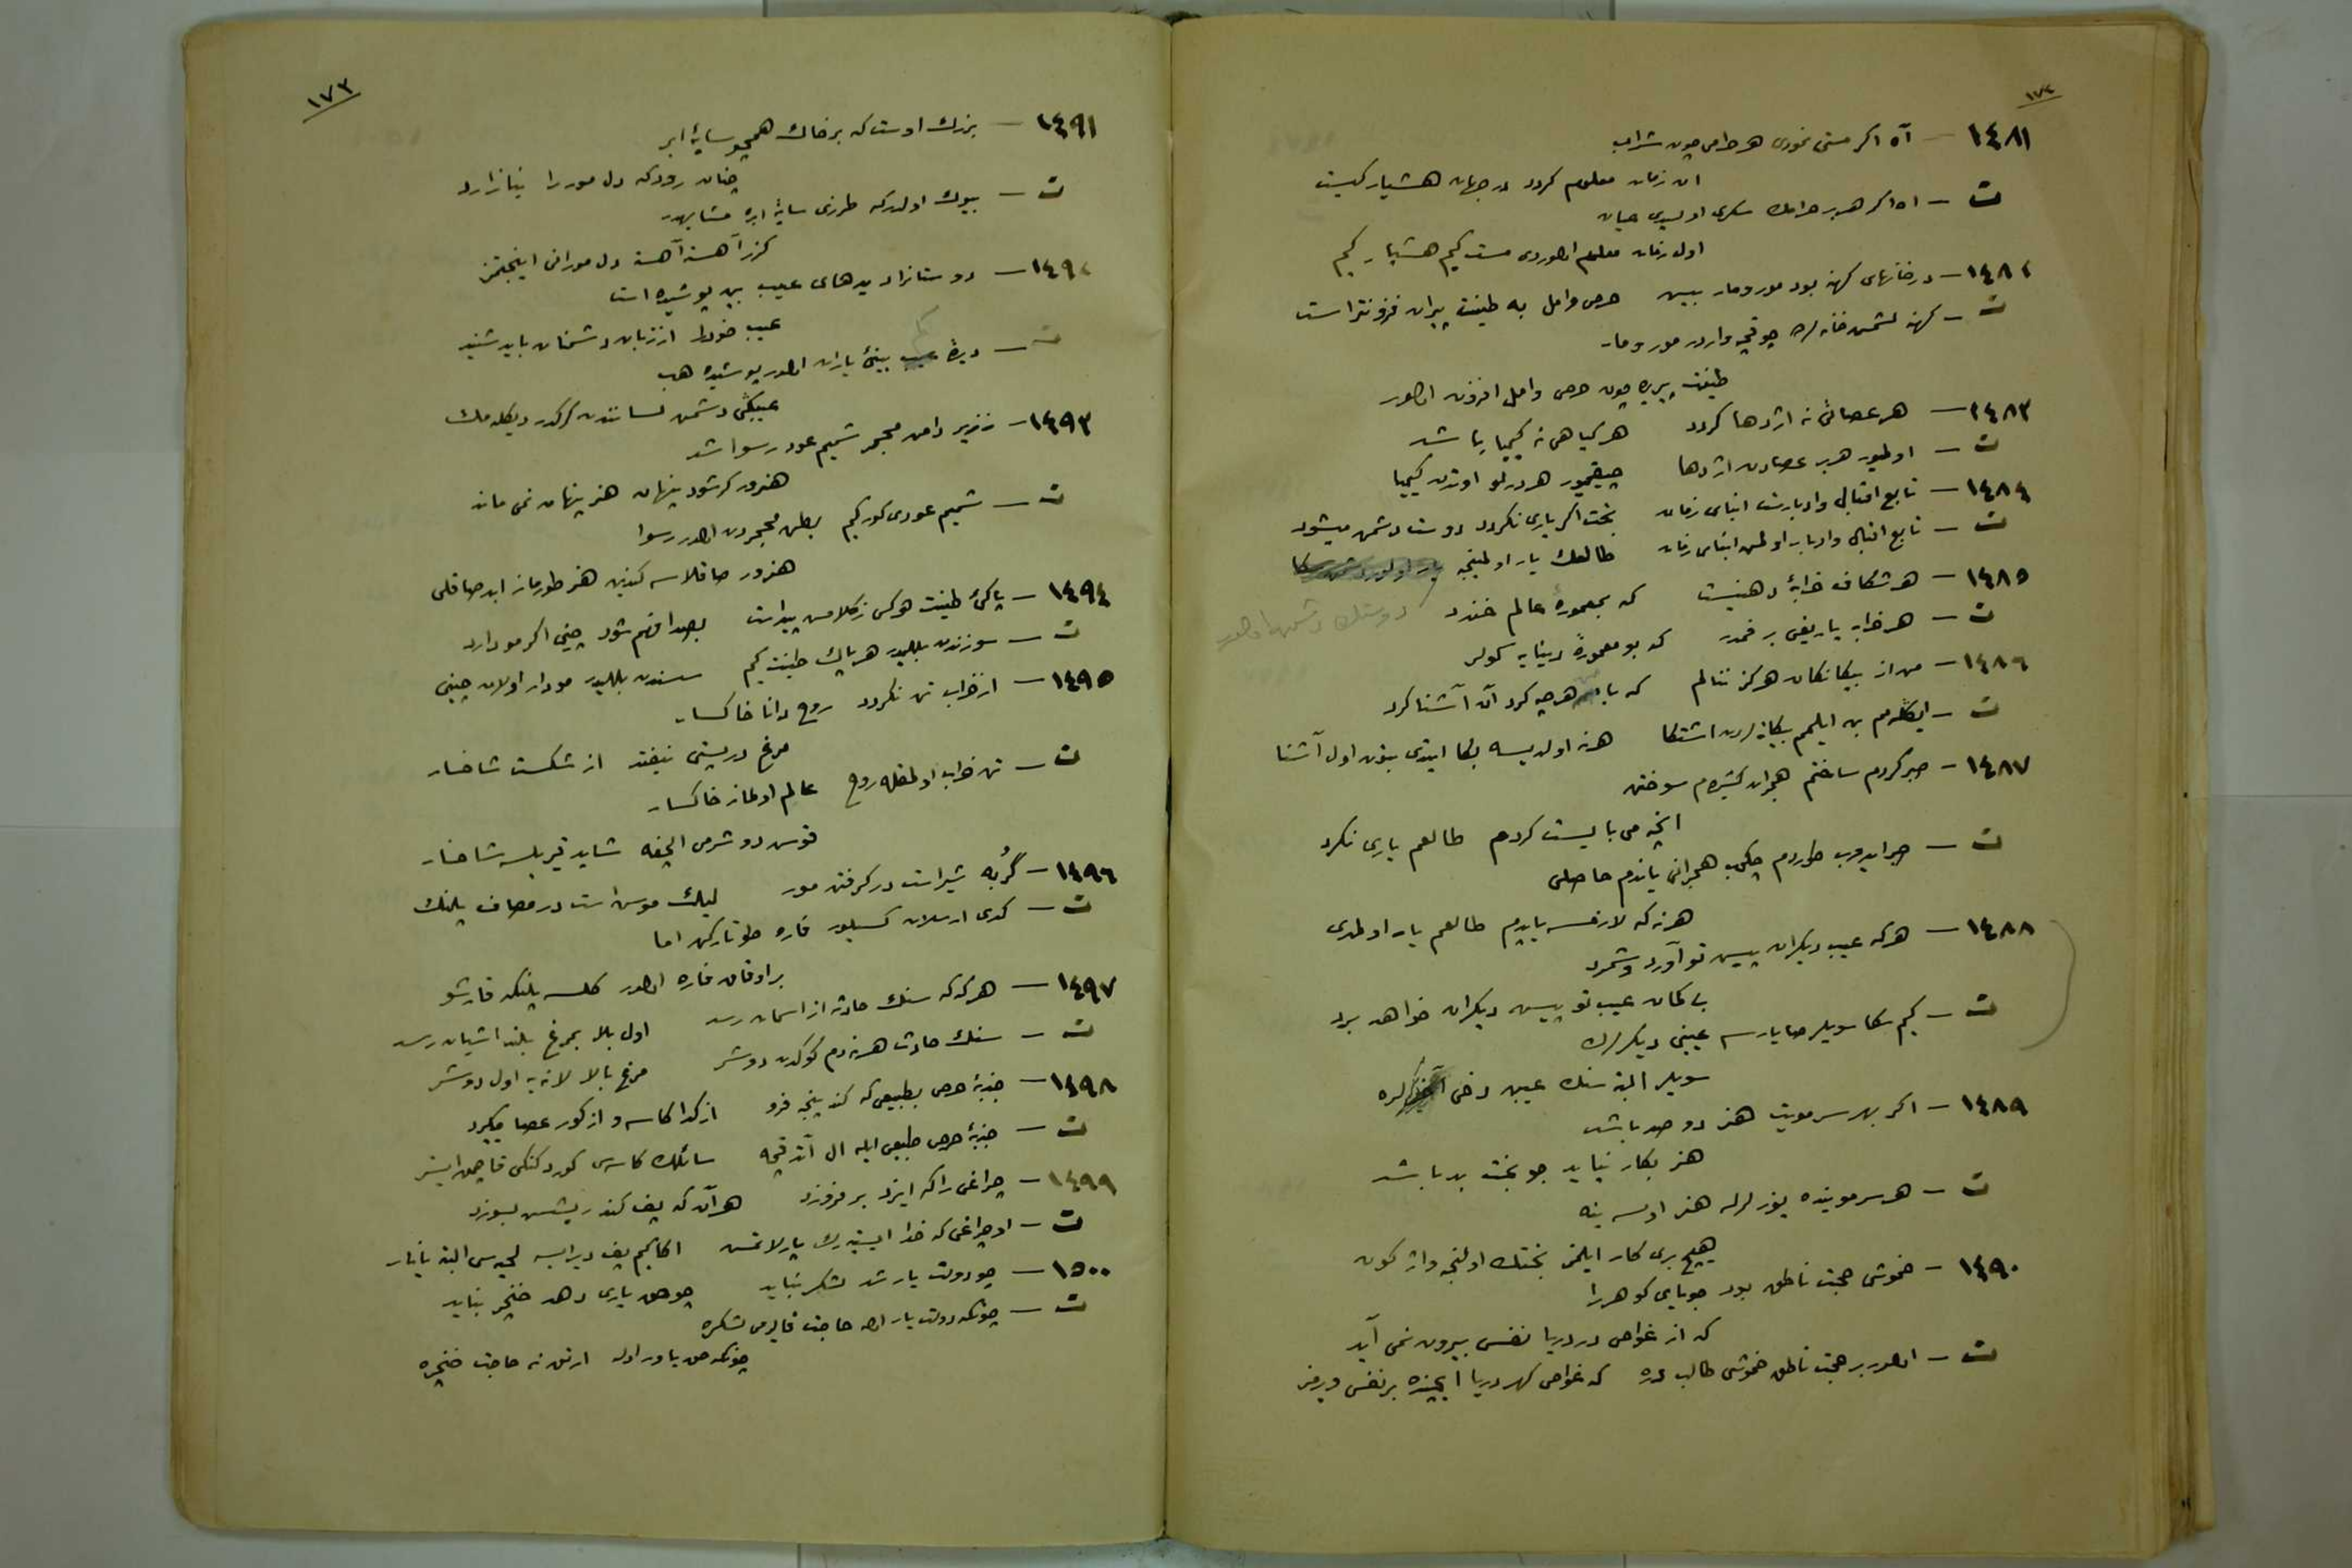 ١٧٢
١٤٨١ — آه اکر مستی نمودی هر حرامی چون شراب
ان زمان معلوم کردد در جهان هشیار کیست
ت — اه اکر هر بر حرامك سکری اولسیدی عیان
اول زمان معلوم اولوردی مست کیم هشیار کیم
١٤٨٢ — در خانهای کهنه بود مور و مار بیس حرص و امل به طینت پیران فزونتر است
ت — کهنه لشمس خانه لرده چوقچه واردر مور و مار
طینت پیریده چون حرص و امل افزون اولور
١٤٨٣ — هر عصائی نه اژدها کردد هر کیاهی نه کیمیا باشد
ت — اولمیور هر بر عصادن اژدها چیقمیور هر درلو اوتدن کیمیا
١٤٨٤ — تابع اقبال و ادبارست ابنای زمان بخت اکر یاری نکردد دوست دشمن میشود
ت — تابع اقبال و ادبار اولمس ابنای زمان طالعك یار اولمینجه دوستك دشمن اولور
١٤٨٥ — هر شکاف خرابهٔ دهنیست که بمعمورهٔ عالم خندد
ت — هر خرابه یاریغی بر فمدر که بو معمورهٔ دنیایه کولر
١٤٨٦ — من از بیکانکان هرکز ننالم که با من هرچه کرد آن آشنا کرد
ت — ایکلمم بن ایلمم بیکانه لردن اشتکا هر نه اولدیسه بکا ایتدی بتون اول آشنا
١٤٨٧ — صبر کردم ساختم هجران کشیدم سوختم
انچه می بایست کردم طالعم یاری نکرد
ت — صبر ایدوب طوردم چکوب هجرانی یاندم حاصلی
هر نه که لازمسه یاپدم طالعم یار اولمدی
١٤٨٨ — هر که عیب دیکران پیش تو آورد و شمرد
بی کمان عیب تو پیش دیکران خواهد برد
ت — کیم سکا سویلر صایارسه عیبنی دیکرلرك
سویلر البته سنك عیبن دخی لره
١٤٨٩ — اکر بهر سر مویت هنر دو صد باشد
هنر بکار نیاید چو بخت بد باشد
ت — هر سر موینده یوزلرله هنر اولسه ینه
هیچ بری کار ایلمز بختك اولنجه واژکون
١٤٩٠ — خموشی حجت ناطق بود جویای کوهر را
که از غواص در دریا نفس بیرون نمی آید
ت — اولور بر حجت ناطق خموشی طالب دره که غواص کهر دریا ایچنده بر نفس ویرمز
١٧٣
١٤٩١ — بزرك اوست که بر خاك همچو سایهٔ ابر
چنان رود که دل مور را نیازارد
ت — بیوك اولدرکه طرزی سایهٔ ابره مشابهدر
کزر آهسته آهسته دل مورانی اینجتمز
١٤٩٢ — دوستانرا دیدهای عیب بین پوشیده است
عیب خودرا از زبان دشمنان باید شنید
ت — دیدهٔ عیب بینئ یاران اولور پوشیده هب
عیبکی دشمن لسانندن کرکدر دیکله مك
١٤٩٣ — ز زیر دامن مجمر شمیم عود رسوا شد
هنرور کر شود پنهان هنر پنهان نمی ماند
ت — شمیم عودی کور کیم بطن مجمردن اولور رسوا
هنرور صاقلاسه کندین هنر طورماز ابد صاقلی
١٤٩٤ — پاکئ طینت هرکس ز کلامش پیداست بصدا فهم شود چینی اکر مو دارد
ت — سوزندن بللیدر هر پاك طینت کیم سسندن بللیدر مودار اولان چینی
١٤٩٥ — از خراب تن نکردد روح دانا خاکسار
مرغ در پستی نیفتد از شکست شاخسار
ت — تن خراب اولمغله روح عالم اولماز خاکسار
قوس دوشرمی الچغه شاید قیریلسه شاخسار
١٤٩٦ — کُربه شیرست در کرفتن مور لیك موش است در مصاف پلنك
ت — کدی ارسلان کسیلور فاره طوتارکن اما
بر اوفاق فاره اولور کلسه پلنکه قارشو
١٤٩٧ — هر که که سنك حادثه از اسمان رسد اول بلا بمرغ بلند اشیان رسد
ت — سنك حادث هر نه دم کوکدن دوشر مرغ بالا لانه یه اول دوشر
١٤٩٨ — جذبهٔ حرص بطبیعی که کند پنجه فرو از کدا کاسه و از کور عصا میکیرد
ت — جذبهٔ حرص طبیعی ایله ال آتدقچه سائلك کاسه سی کورد کنکی قاپمق ایستر
١٤٩٩ — چراغی را که ایزد بر فروزد هر آن که پف کند ریشش بسوزد
ت — او چراغی که خدا ایستیه رك پارلاتمش اکا کیم پف دیرایسه لحیه سی البته یانار
١٥٠٠ — چو دولت یار شد لشکر نباید چو حق یاری دهد خنجر نباید
ت — چونکه دولت یار اوله حاجت قالیرمی لشکره
چونکه حق یاور اوله ارتق نه حاجت خنجره